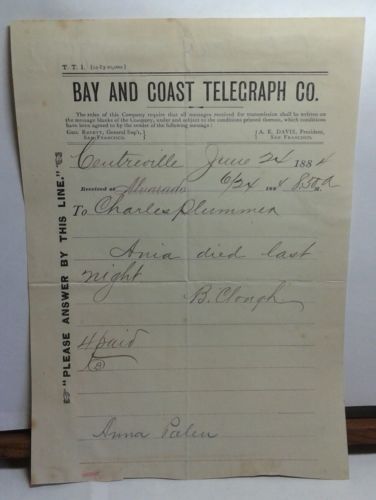 T. T. 1.
BAY AND COAST TELEGRAPH CO.
The rules of this Company require that all messages received for transmission shall be written on
the message blanks of the Company, under and subject to the conditions printed thereon, which conditions
have been agreed to by the sender of the following message:
General Sup't, A. E. DAVIS, President,
SAN FRANCISCO. SAN FRANCISCO.
Centreville June 24 1884
Received at Alvarado 6/24 1884 8.50 a M.
To Charles Plummer
Ania died last
night
B. Clough
4 paid
Anna
"PLEASE ANSWER BY THIS LINE."